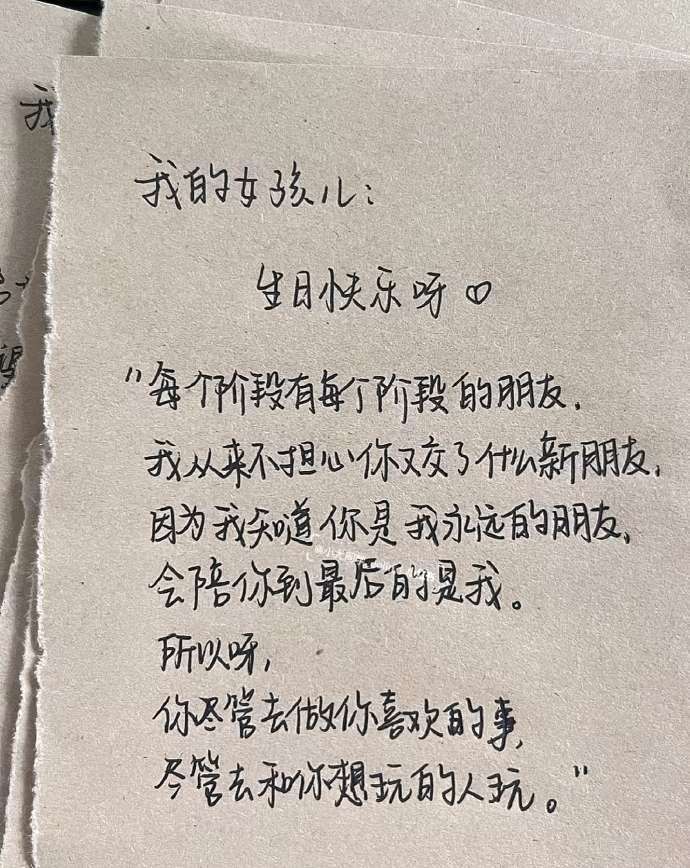 我的女孩儿：
生日快乐呀♡
"每个阶段有每个阶段的朋友，
我从来不担心你又交了什么新朋友，
因为我知道你是我永远的朋友，
会陪你到最后的是我。
所以呀，
你尽管去做你喜欢的事，
尽管去和你想玩的人玩。"
我